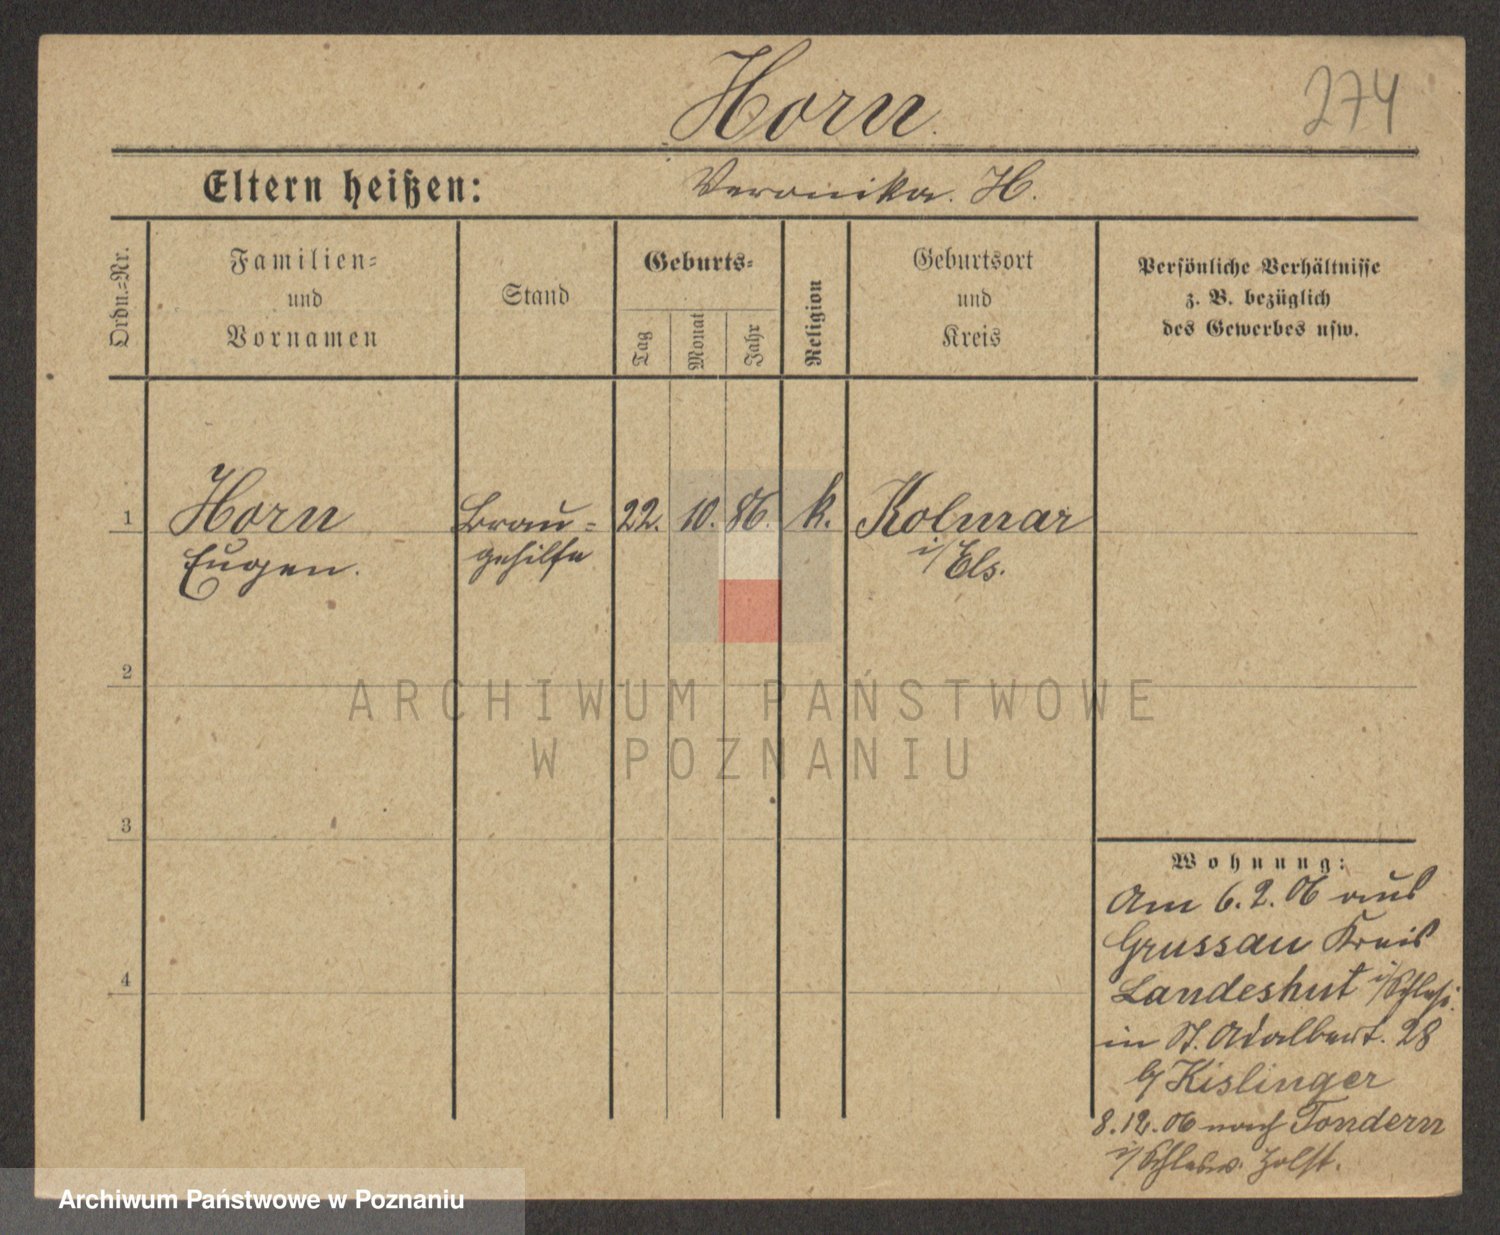 Horn.
274
Eltern heißen: Veronika. H.
Ordn.=Nr.
Familien=
und
Vornamen
Stand
Geburts=
Tag
Monat
Jahr
Religion
Geburtsort
und
Kreis
Persönliche Verhältnisse
z. B. bezüglich
des Gewerbes usw.
1
Horn Brau= 22. 10. 86. k. Kolmar
Eugen. gehilfe i/Els.
2
ARCHIWUM PAŃSTWOWE
W POZNANIU
3
Wohnung:
Am 6.2.06 aus
Grussau Kreis
4
Landeshut i/Schles.
in St. Adalbert. 28
b/ Kislinger
8.12.06 nach Tondern
i/Schlesw. Holst.
Archiwum Państwowe w Poznaniu